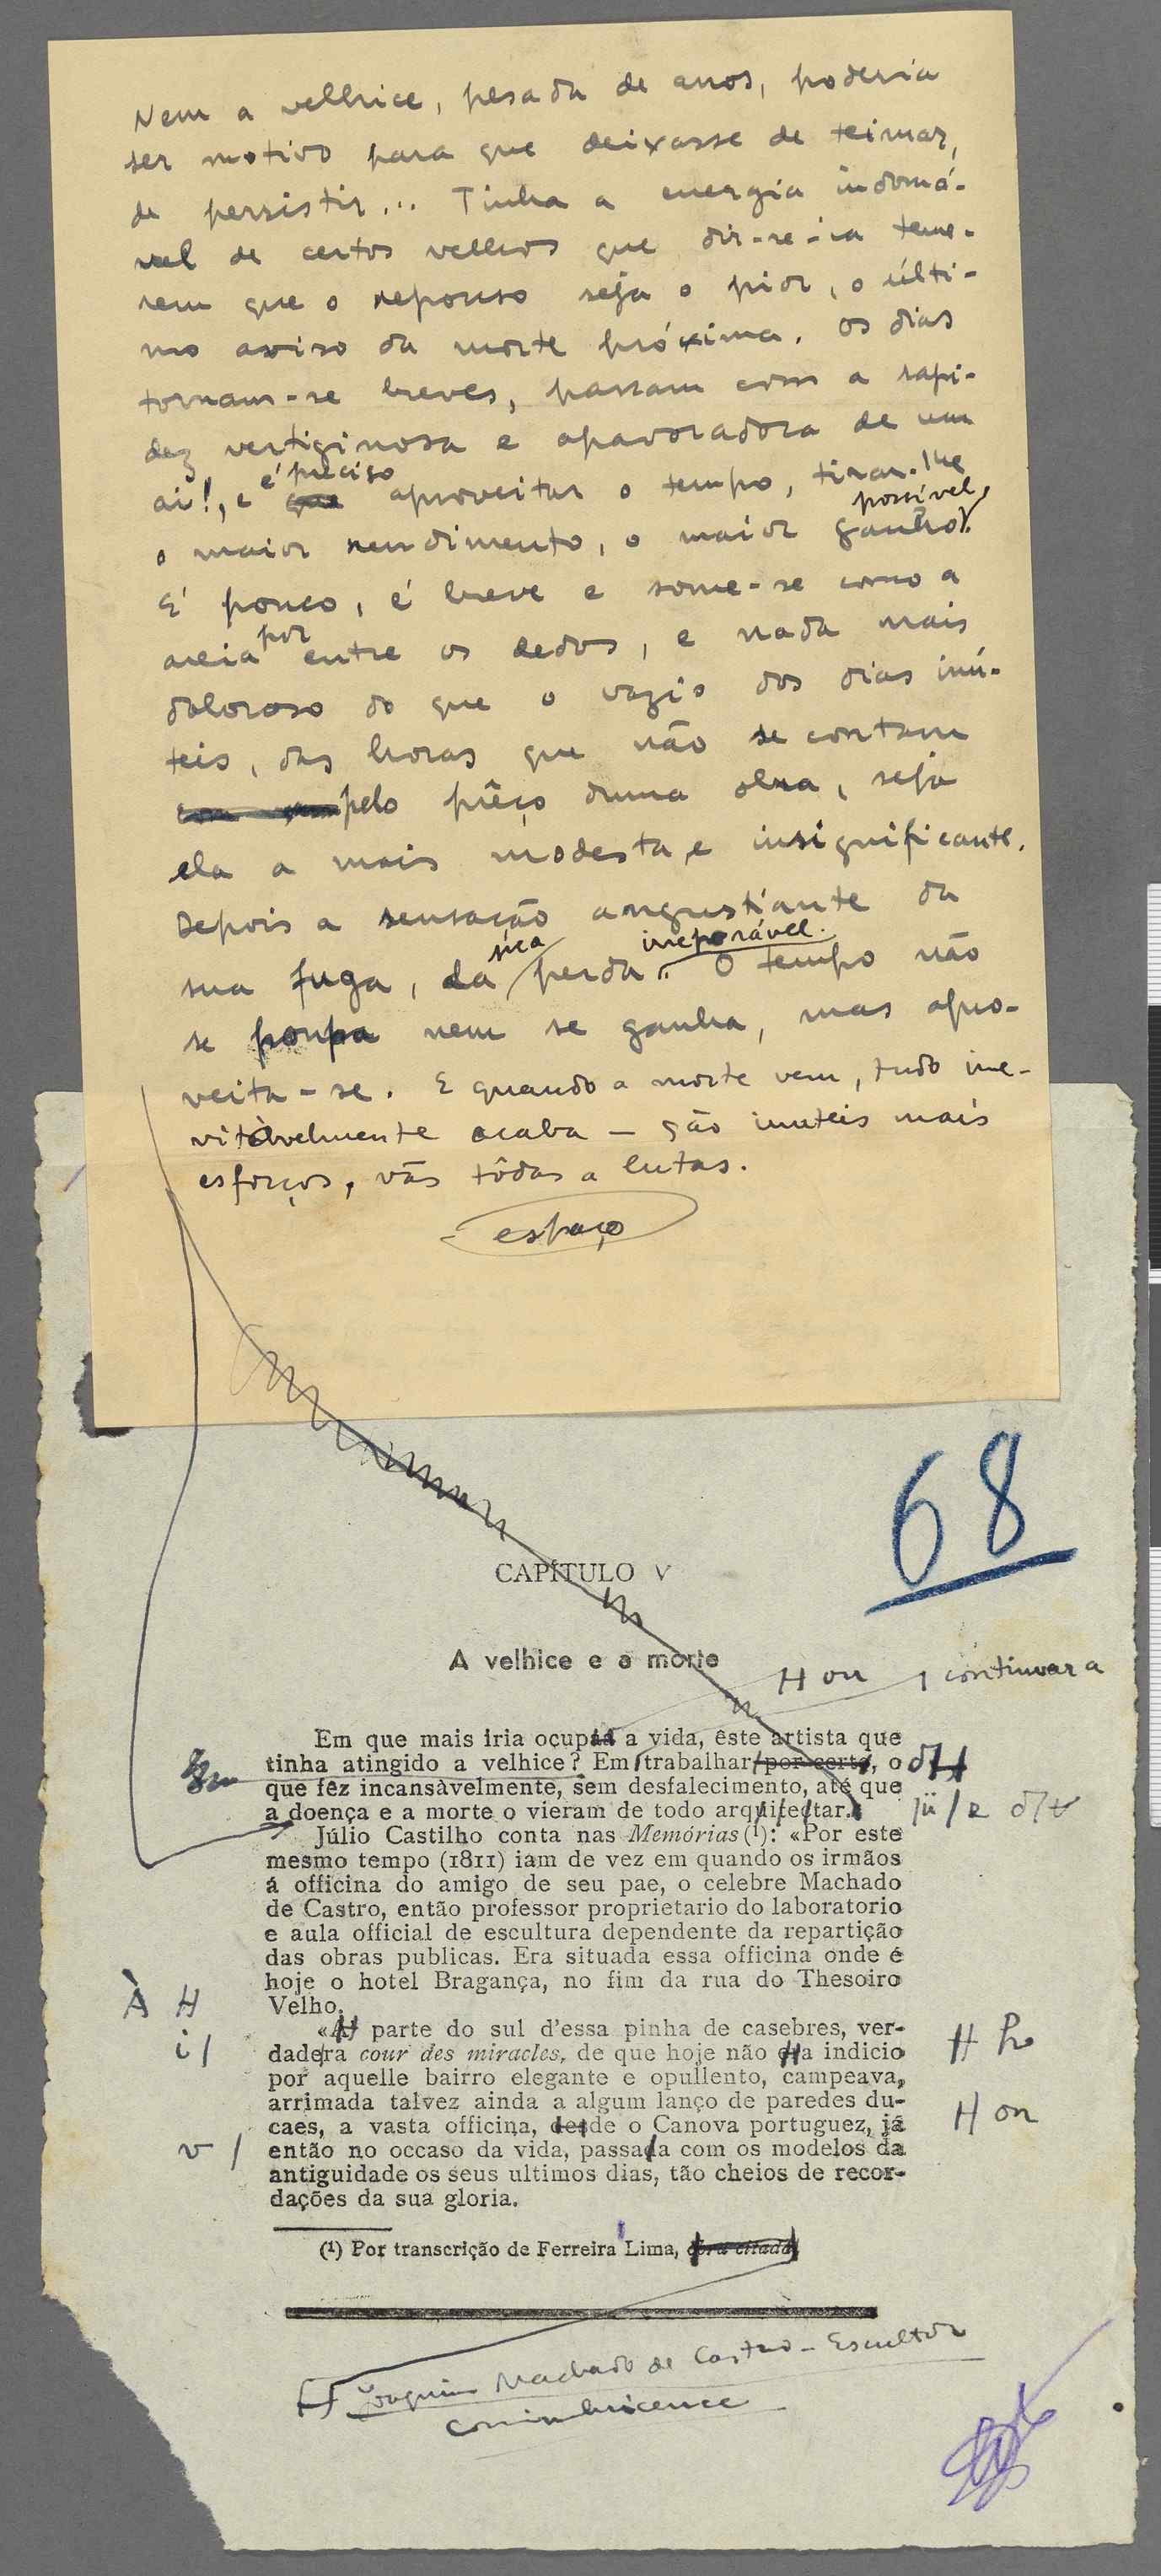 Nem a velhice, pesada de anos, poderia
ser motivo para que deixasse de teimar,
de persistir... Tinha a energia indomá-
vel de certos velhos que dir-se-ia teme-
rem que o repouso seja o pior, o últi-
mo aviso da morte próxima. Os dias
tornam-se breves, passam com a rapi-
dez vertiginosa e apavoradora de um
é preciso
ai!, e que aproveitar o tempo, tirar-lhe
possível,
o maior rendimento, o maior ganho.
É pouco, é breve e some-se como a
por
areia entre os dedos, e nada mais
doloroso do que o vazio dos dias inú-
teis, das horas que não se contam
pelo prêço duma obra, seja
ela a mais modesta e insignificante.
Depois a sensação angustiante da
sua irreparável.
sua fuga, da perda. O tempo não
se poupa nem se ganha, mas apro-
veita-se. E quando a morte vem, tudo ine-
vitàvelmente acaba — são inuteis mais
esforços, vãs tôdas a lutas.
espaço
68
CAPÍTULO V
A velhice e a morte
H ou 1 continuar a
Em que mais iria ocupar a vida, êste artista que
tinha atingido a velhice? Em trabalhar por certo, o
que fêz incansàvelmente, sem desfalecimento, até que
a doença e a morte o vieram de todo arquitectar.
Júlio Castilho conta nas Memórias (¹): «Por este
mesmo tempo (1811) iam de vez em quando os irmãos
á officina do amigo de seu pae, o celebre Machado
de Castro, então professor proprietario do laboratorio
e aula official de escultura dependente da repartição
das obras publicas. Era situada essa officina onde é
hoje o hotel Bragança, no fim da rua do Thesoiro
Velho.
À H
«A parte do sul d'essa pinha de casebres, ver-
H h
i /
dadera cour des miracles, de que hoje não a indicio
por aquelle bairro elegante e opullento, campeava,
arrimada talvez ainda a algum lanço de paredes du-
caes, a vasta officina, desde o Canova portuguez, já
H on
v /
então no occaso da vida, passaa com os modelos da
antiguidade os seus ultimos dias, tão cheios de recor-
dações da sua gloria.
(¹) Por transcrição de Ferreira Lima, obra citada
Joaquim Machado de Castro - Escultor
Conimbricence